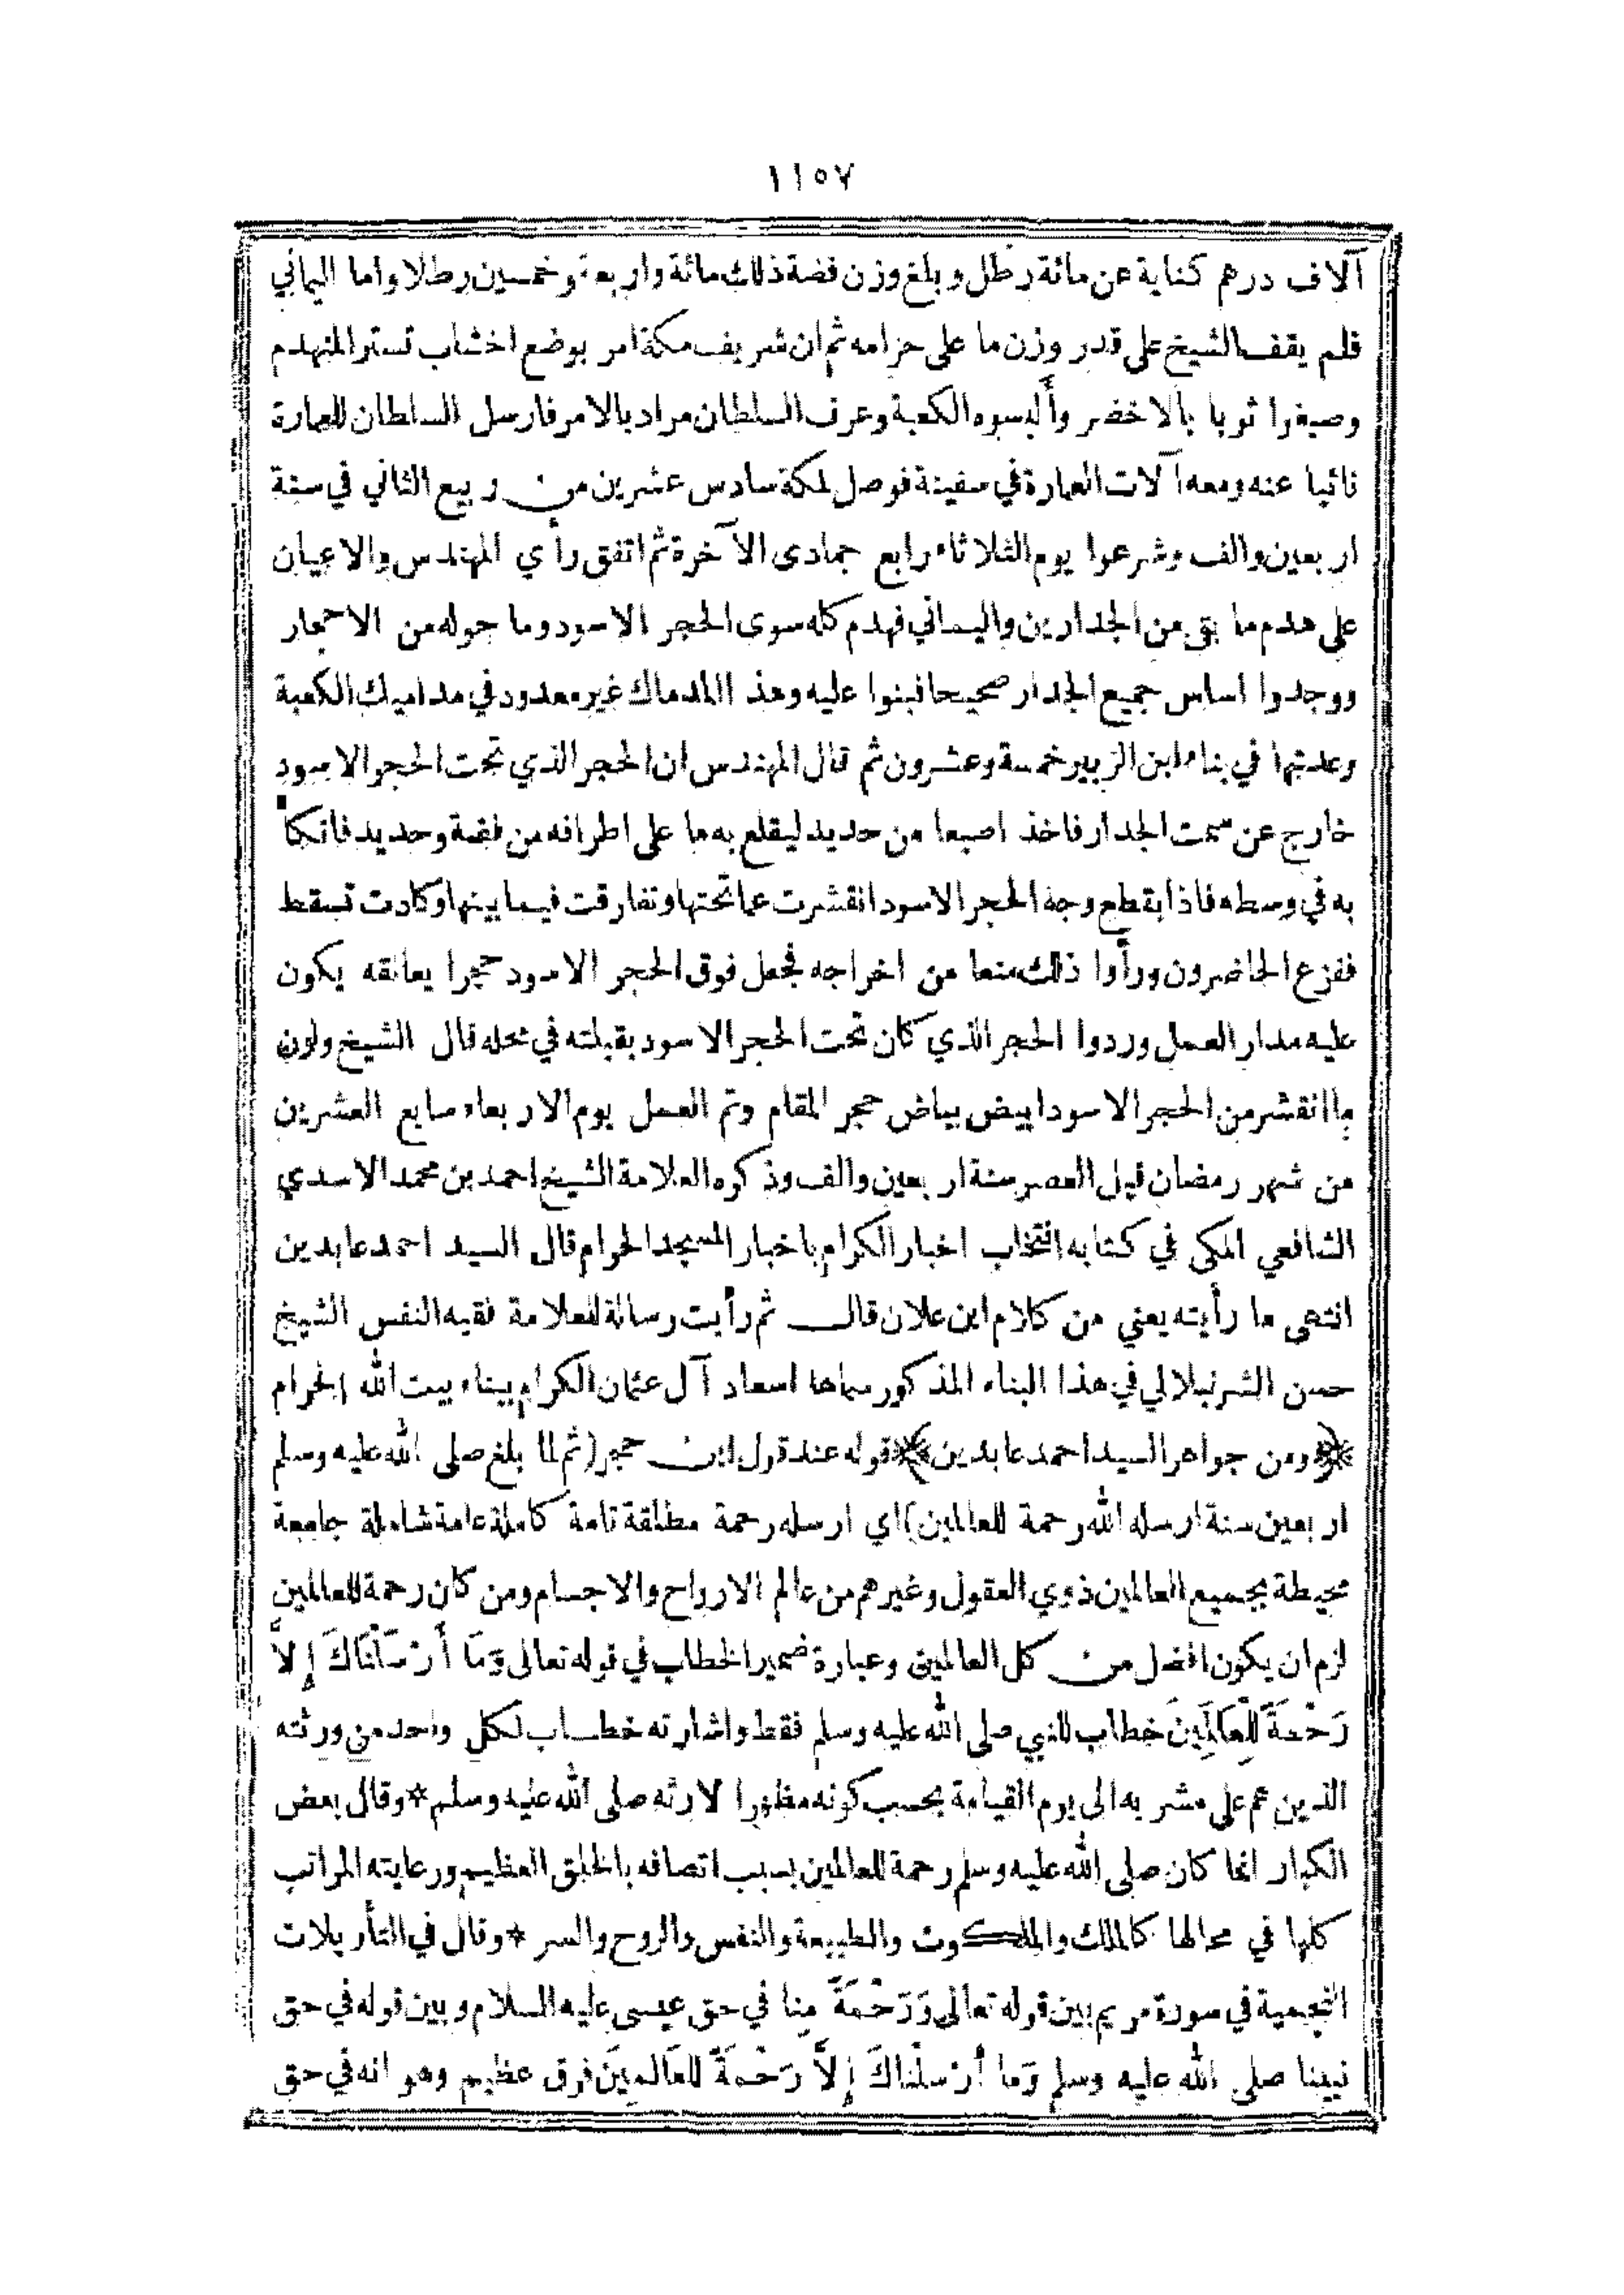 ١١٥٧
آلاف درهم كناية عن مائة رطل وبلغ وزن فضة ذلك مائة واربعة وخمسين رطلا واما اليماني
فلم يقف الشيخ على قدر وزن ما على حزامه ثم ان شريف مكة امر بوضع اخشاب تستر المنهدم
وصبغوا ثوبا بالاخضر وألبسوه الكعبة وعرف السلطان مراد بالامر فارسل السلطان للعمارة
نائبا عنه ومعه آلات العمارة في سفينة فوصل لمكة سادس عشرين من ربيع الثاني في سنة
اربعين والف وشرعوا يوم الثلاثاء رابع جمادى الآخرة ثم اتفق رأي المهندس والاعيان
على هدم ما بقي من الجدارين واليماني فهدم كله سوى الحجر الاسود وما حوله من الاحجار
ووجدوا اساس جميع الجدار صحيحا فبنوا عليه وهذا المدماك غير معدود في مداميك الكعبة
وعدتها في بناء ابن الزبير خمسة وعشرون ثم قال المهندس ان الحجر الذي تحت الحجر الاسود
خارج عن سمت الجدار فاخذ اصبعا من حديد ليقلع به ما على اطرافه من فضة وحديد فاتكأ
به في وسطه فاذا بقطع وجه الحجر الاسود انقشرت عما تحتها وتفارقت فيما بينها وكادت تسقط
ففزع الحاضرون ورأوا ذلك منعا من اخراجه فجعل فوق الحجر الاسود حجرا يعانقه يكون
عليه مدار العمل وردوا الحجر الذي كان تحت الحجر الاسود بقبلته في محله قال الشيخ ولون
ما انقشر من الحجر الاسود ابيض بياض حجر المقام وتم العمل يوم الاربعاء سابع العشرين
من شهر رمضان قبل العصر سنة اربعين والف وذكره العلامة الشيخ احمد بن محمد الاسدي
الشافعي المكي في كتابه انتخاب اخبار الكرام باخبار المسجد الحرام قال السيد احمد عابدين
انتهى ما رأيته يعني من كلام ابن علان قال ثم رأيت رسالة للعلامة فقيه النفس الشيخ
حسن الشرنبلالي في هذا البناء المذكور سماها اسعاد آل عثمان الكرام ببناء بيت الله الحرام
﴿ومن جواهر السيد احمد عابدين﴾ قوله عند قول ابن حجر (ثم لما بلغ صلى الله عليه وسلم
اربعين سنة ارسله الله رحمة للعالمين) اي ارسله رحمة مطلقة تامة كاملة عامة شاملة جامعة
محيطة بجميع العالمين ذوي العقول وغيرهم من عالم الارواح والاجسام ومن كان رحمة للعالمين
لزم ان يكون افضل من كل العالمين وعبارة ضمير الخطاب في قوله تعالى وَمَا أَرْسَلْنَاكَ إِلاَّ
رَحْمَةً لِلْعَالَمِينَ خطاب للنبي صلى الله عليه وسلم فقط واشارته خطاب لكل واحد من ورثته
الذين هم على مشربه الى يوم القيامة بحسب كونه مظهرا لارثه صلى الله عليه وسلم * وقال بعض
الكبار انما كان صلى الله عليه وسلم رحمة للعالمين بسبب اتصافه بالخلق العظيم ورعايته المراتب
كلها في محالها كالملك والملكوت والطبيعة والنفس والروح والسر * وقال في التأويلات
النجمية في سورة مريم بين قوله تعالى وَرَحْمَةً مِنا في حق عيسى عليه السلام وبين قوله في حق
نبينا صلى الله عليه وسلم وَمَا أَرْسَلْنَاكَ إِلاَّ رَحْمَةً للعَالَمِينَ فرق عظيم وهو انه في حق